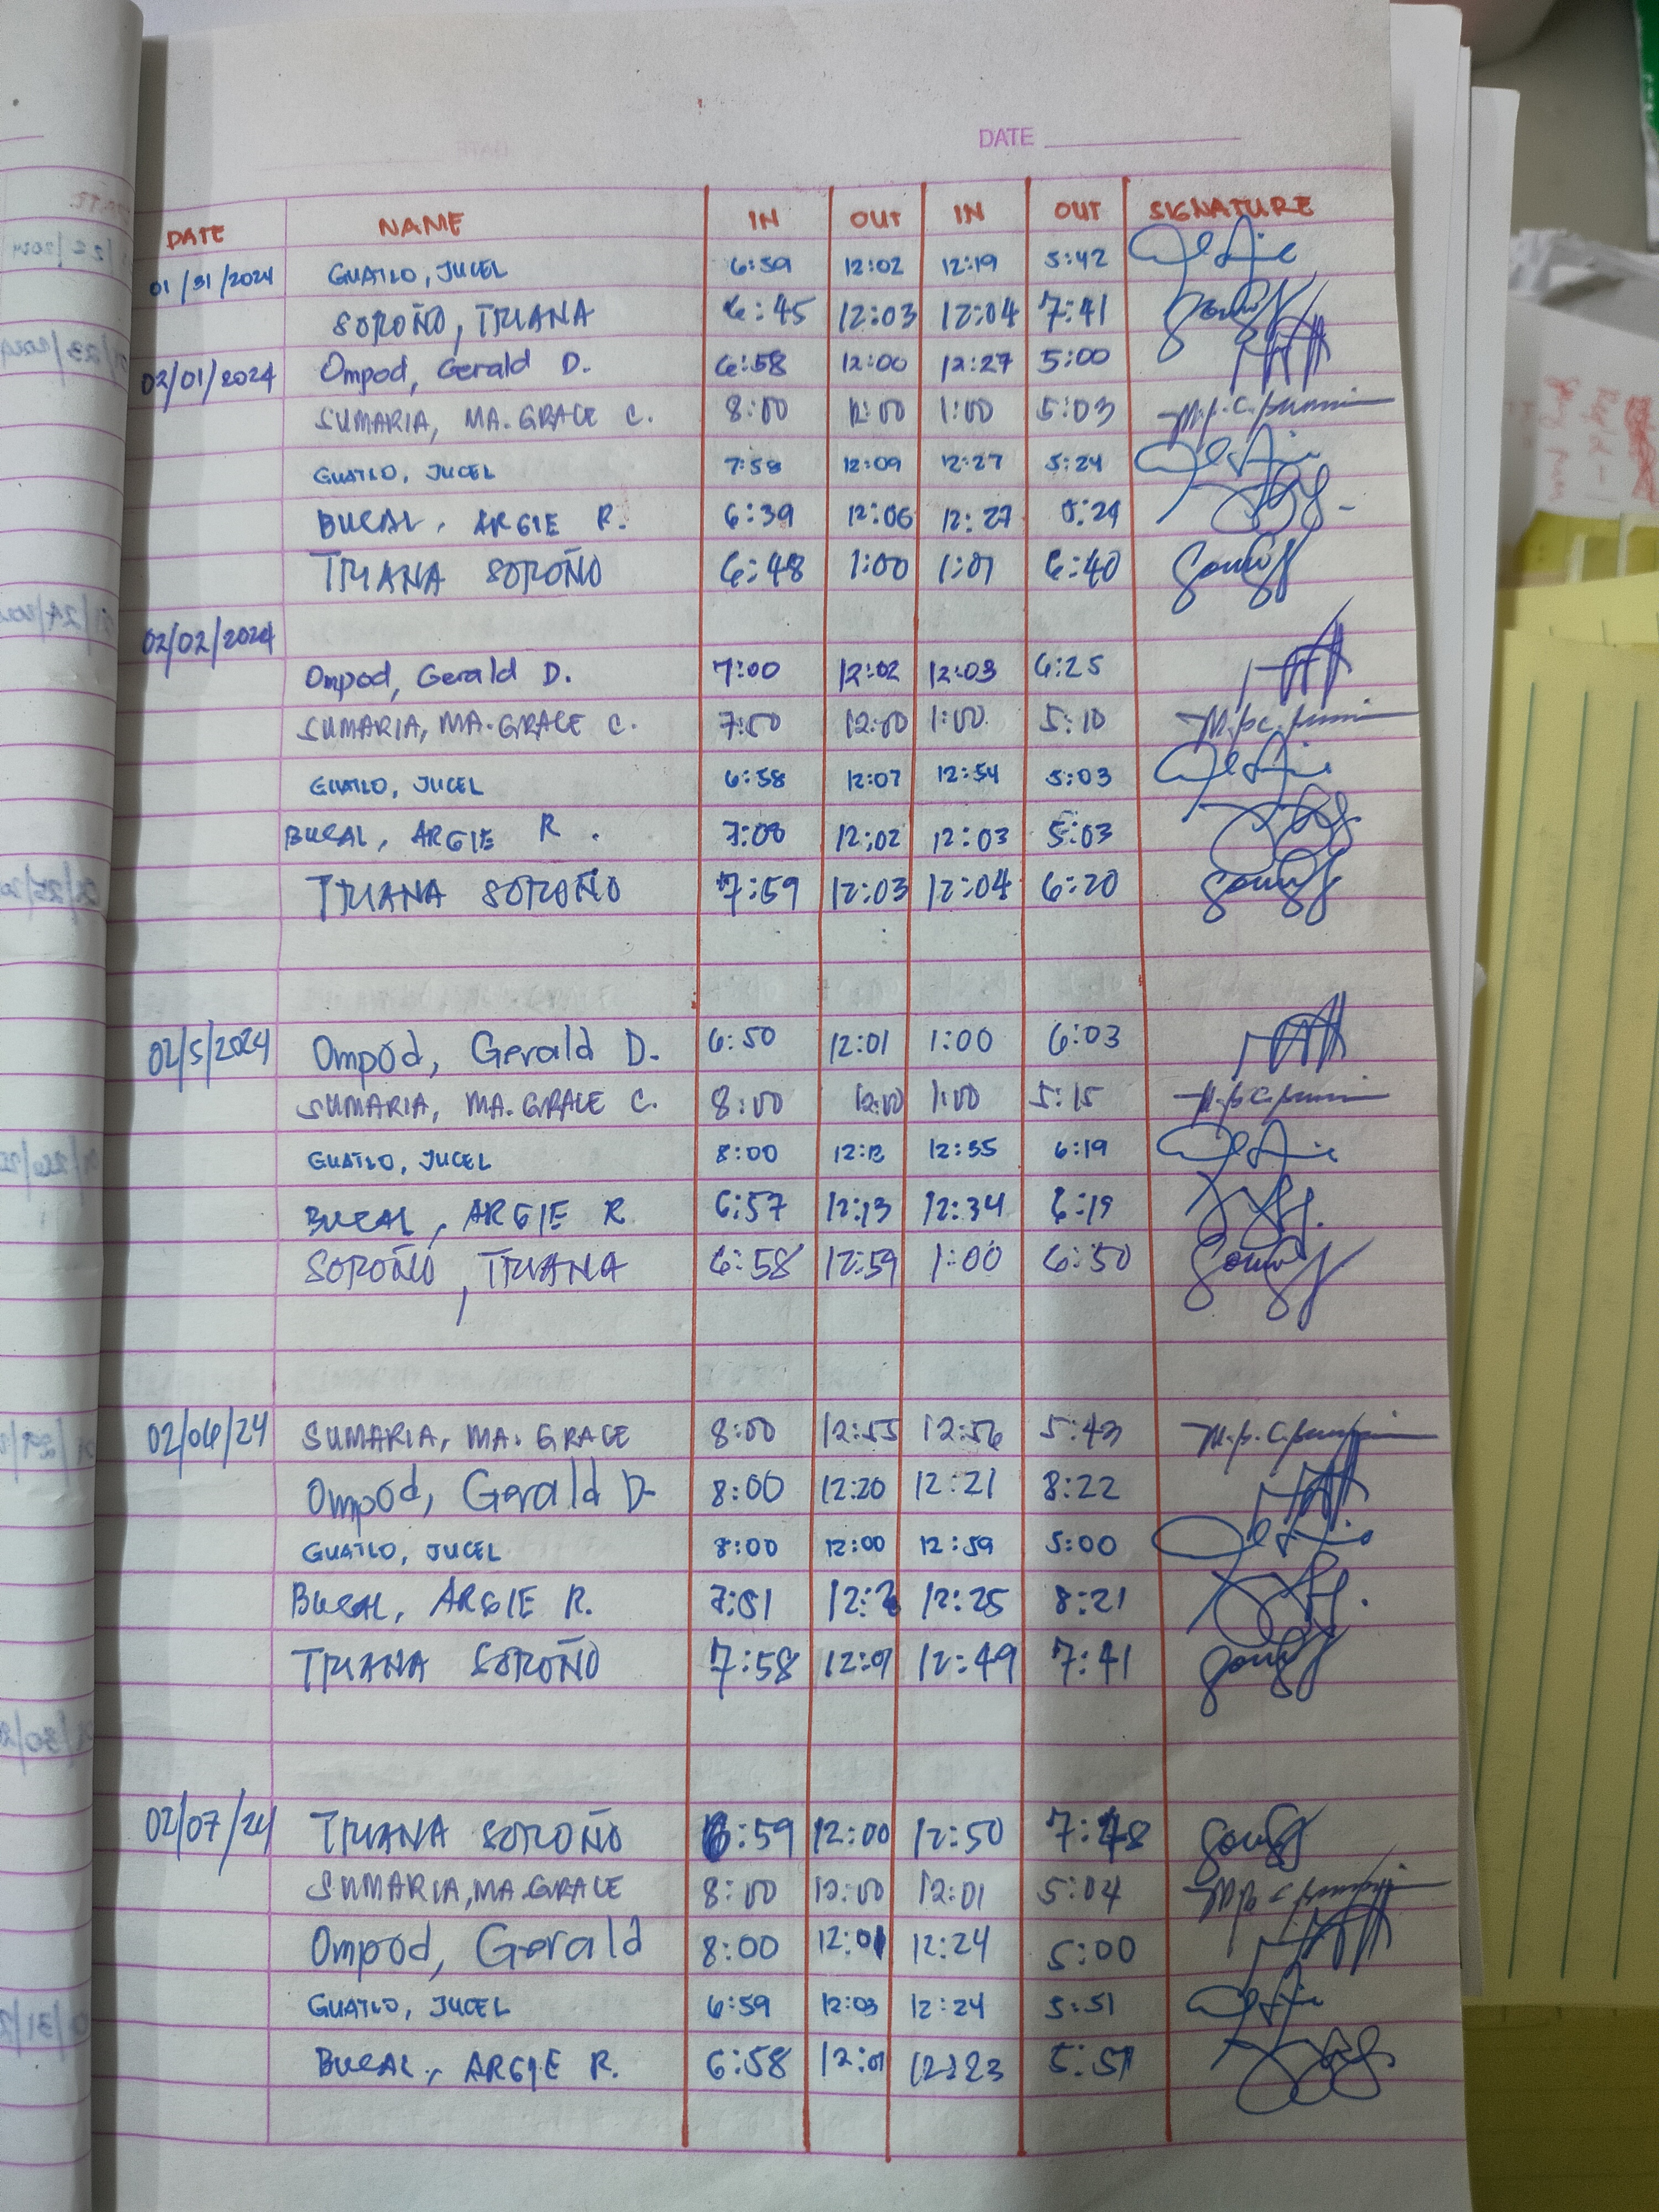 DATE
DATE NAME IN OUT IN OUT SIGNATURE
01/31/2024 GUATLO, JUCEL 6:59 12:02 12:19 5:42
SOROÑO, TRIANA 6:45 12:03 12:04 7:41
02/01/2024 Ompod, Gerald D. 6:58 12:00 12:27 5:00
SUMARIA, MA. GRACE C. 8:00 12:00 1:00 5:03
GUATLO, JUCEL 7:58 12:09 12:27 5:24
BUCAL, ARGIE R. 6:39 12:06 12:27
TRIANA SOROÑO 6:48 1:00 1:01 6:40
02/02/2024
Ompod, Gerald D. 7:00 12:02 12:03 6:25
SUMARIA, MA. GRACE C. 7:50 12:00 1:00 5:10
GUATLO, JUCEL 6:58 12:07 12:54 5:03
BUCAL, ARGIE R. 7:00 12:02 12:03 5:03
TRIANA SOROÑO 7:59 12:03 12:04 6:20
02/5/2024 Ompod, Gerald D. 6:50 12:01 1:00 6:03
SUMARIA, MA. GRACE C. 8:00 12:00 1:00 5:15
GUATLO, JUCEL 8:00 12:13 12:35 6:19
BUCAL, ARGIE R 6:57 12:13 12:34 6:19
SOROÑO, TRIANA 6:58 12:59 1:00 6:50
02/06/24 SUMARIA, MA. GRACE 8:00 12:55 12:56 5:43
Ompod, Gerald D. 8:00 12:20 12:21 8:22
GUATLO, JUCEL 8:00 12:00 12:59 5:00
BUCAL, ARGIE R. 7:51 12:25 8:21
TRIANA SOROÑO 7:58 12:01 12:49 7:41
02/07/24 TRIANA SOROÑO 6:59 12:00 12:50 7:48
SUMARIA, MA. GRACE 8:00 12:00 12:01 5:04
Ompod, Gerald 8:00 12:01 12:24 5:00
GUATLO, JUCEL 6:59 12:03 12:24 5:51
BUCAL, ARGIE R. 6:58 12:01 12:23 5:51